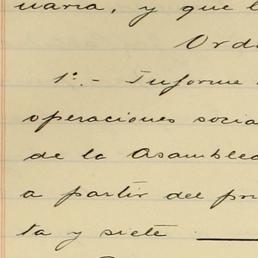 uaria, y que l
Orde
1º.- Informe
operaciones socia
de la Asamblea
a partir del pri
ta y siete